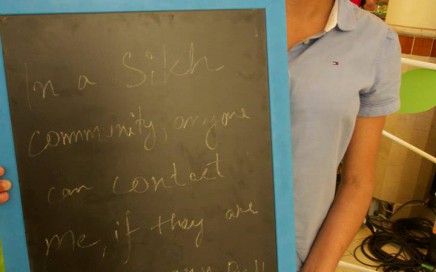 In a Sikh
community, anyone
can contact
me, if they are